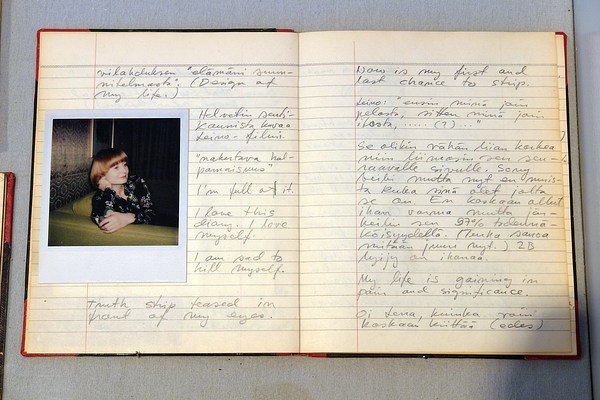 vilahduksen "elämäni suun-
nitelmasta". (Design of
my life.)
Helvetin senti-
kaunista kuvaa
Leino-filmi.
"nakertava hal-
pamaisuus"
I'm full of it
I love this
diary. I love
myself.
I am sad to
kill myself.
Truth strip teased in
front of my eyes.
Now is my first and
last chance to strip.
Leino: "ensin minä join
pelosta, sitten minä join
ilosta, ..... (?) ..."
Se olikin vähän liian korkea
niin
seuraavalle sivulle. Sorry
beibi mutta nyt en muis-
ta kuka sinä olet jolta
se on. En koskaan ollut
ihan varma mutta
sen 97% todennä-
köisyydellä. (Tuska sanoa
mitään juuri nyt.) 2B
kyjyy on ihanaa.
My life is gaining in
pain and significance.
Oi Lena, kuinka voin
koskaan kiittää (edes)